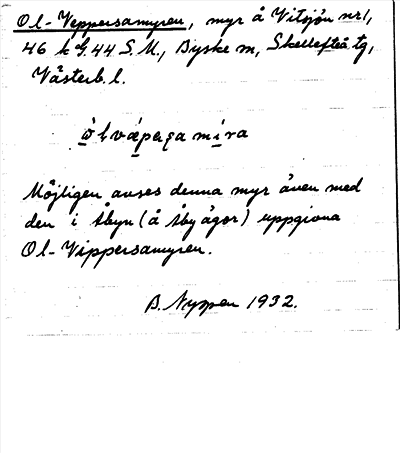 Ol-Veppersamyren, myr å Vitsjön nr 1,
46 k G. 44 S. U., Byske sn, Skellefteå tg,
Västerb. l.
Möjligen avses denna myr även med
den i Åbyn (å Åby ägor) uppgivna
Ol-Vippersamyren.
B. Nyman 1932.